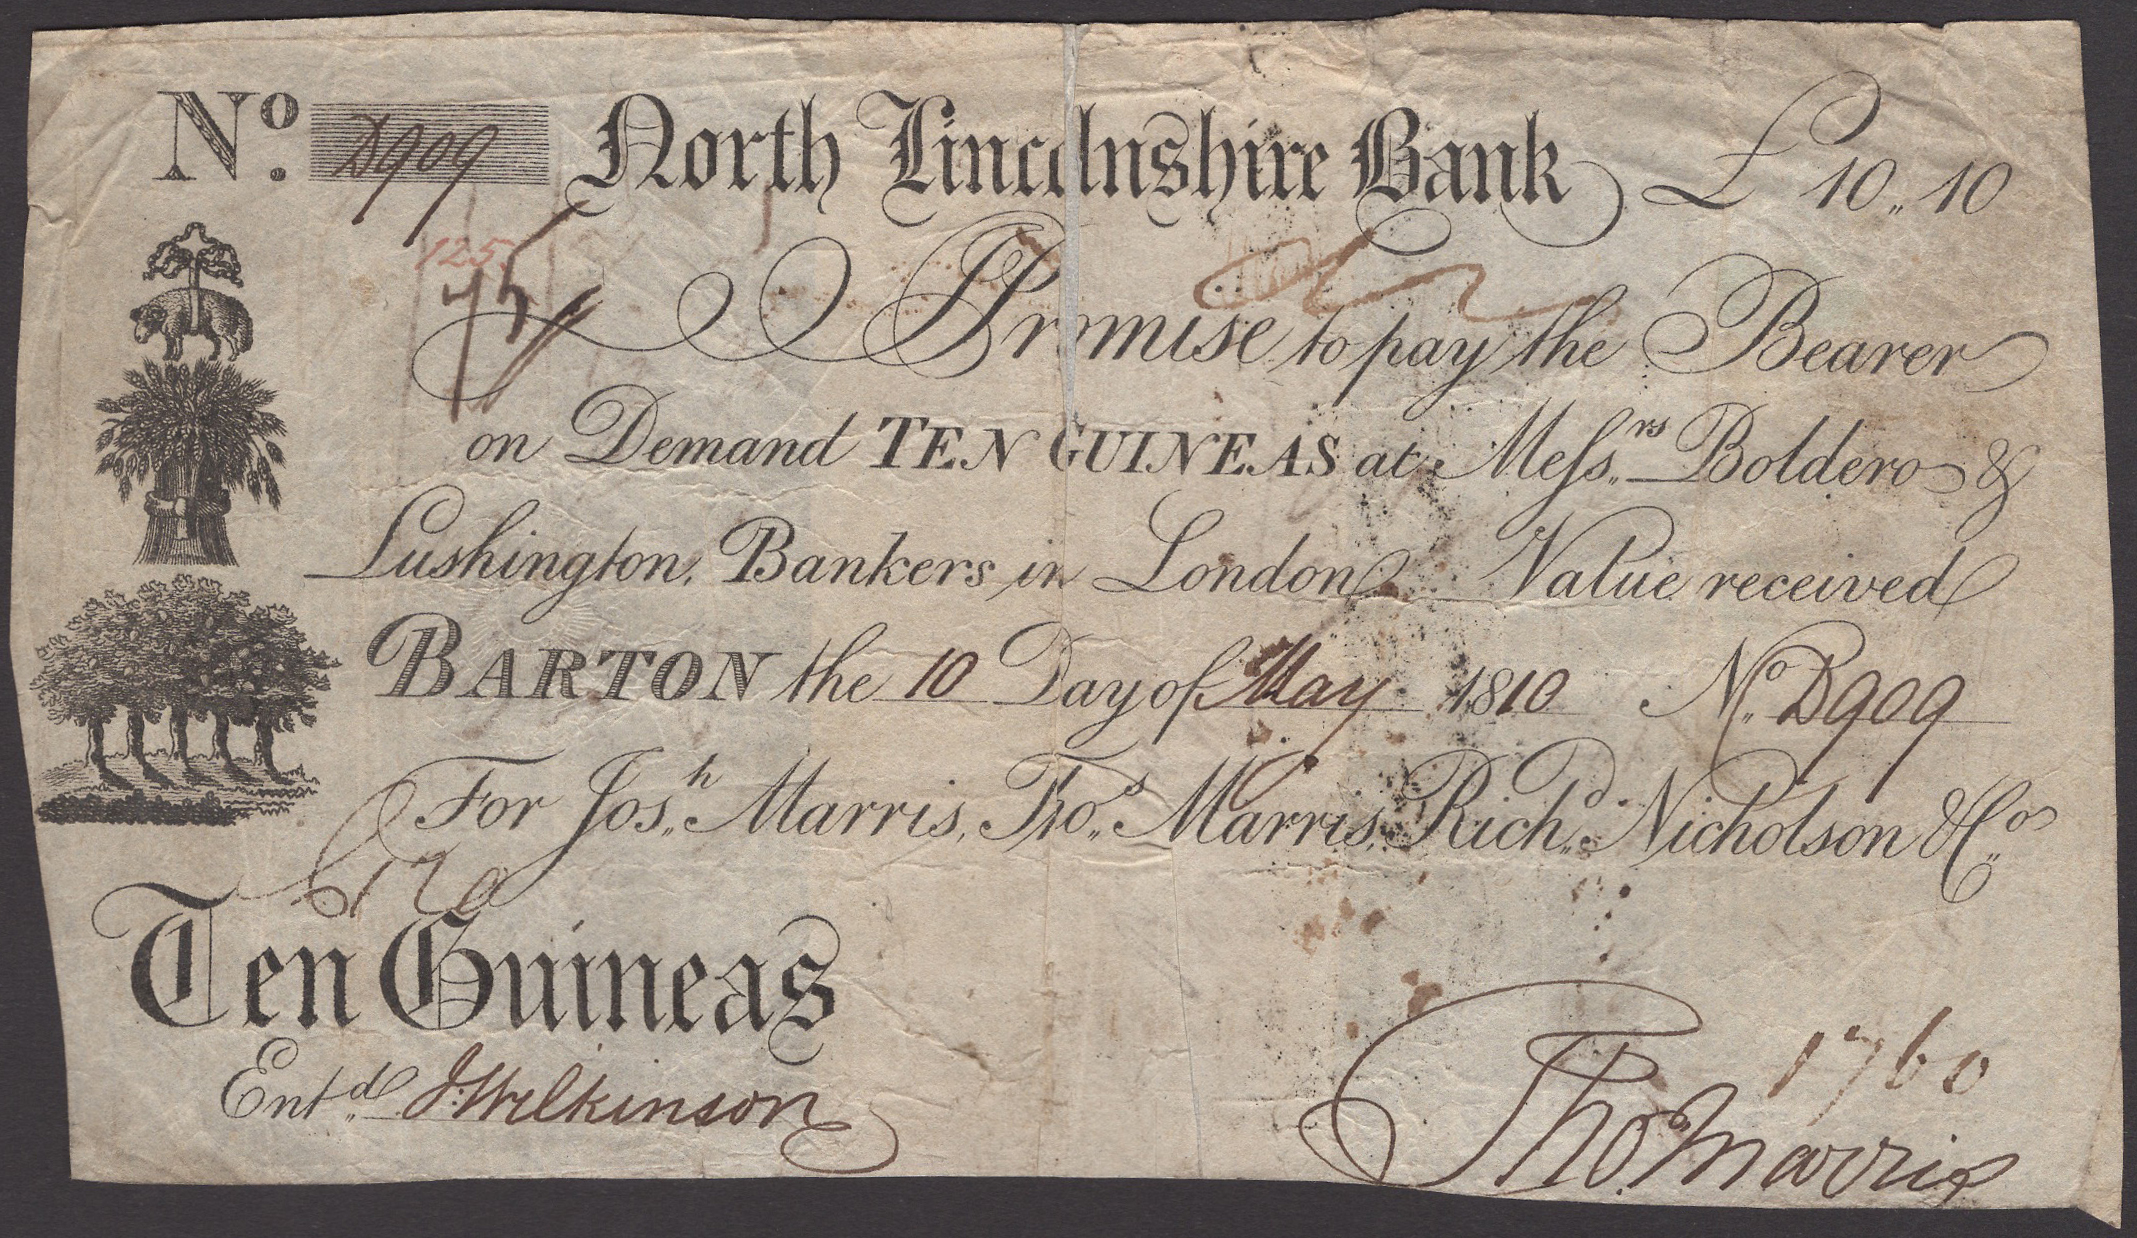 No. D909 North Lincolnshire Bank £10,,10
125
I Promise to pay the Bearer
on Demand TEN GUINEAS at Messrs. Boldero &
Lushington, Bankers in London Value received
BARTON the 10 Day of May 1810 No. D909
For Josh. Marris, Thos. Marris, Richd. Nicholson & Co.
Ten Guineas
1760
Entd. J. Wilkinson
Tho. Marris